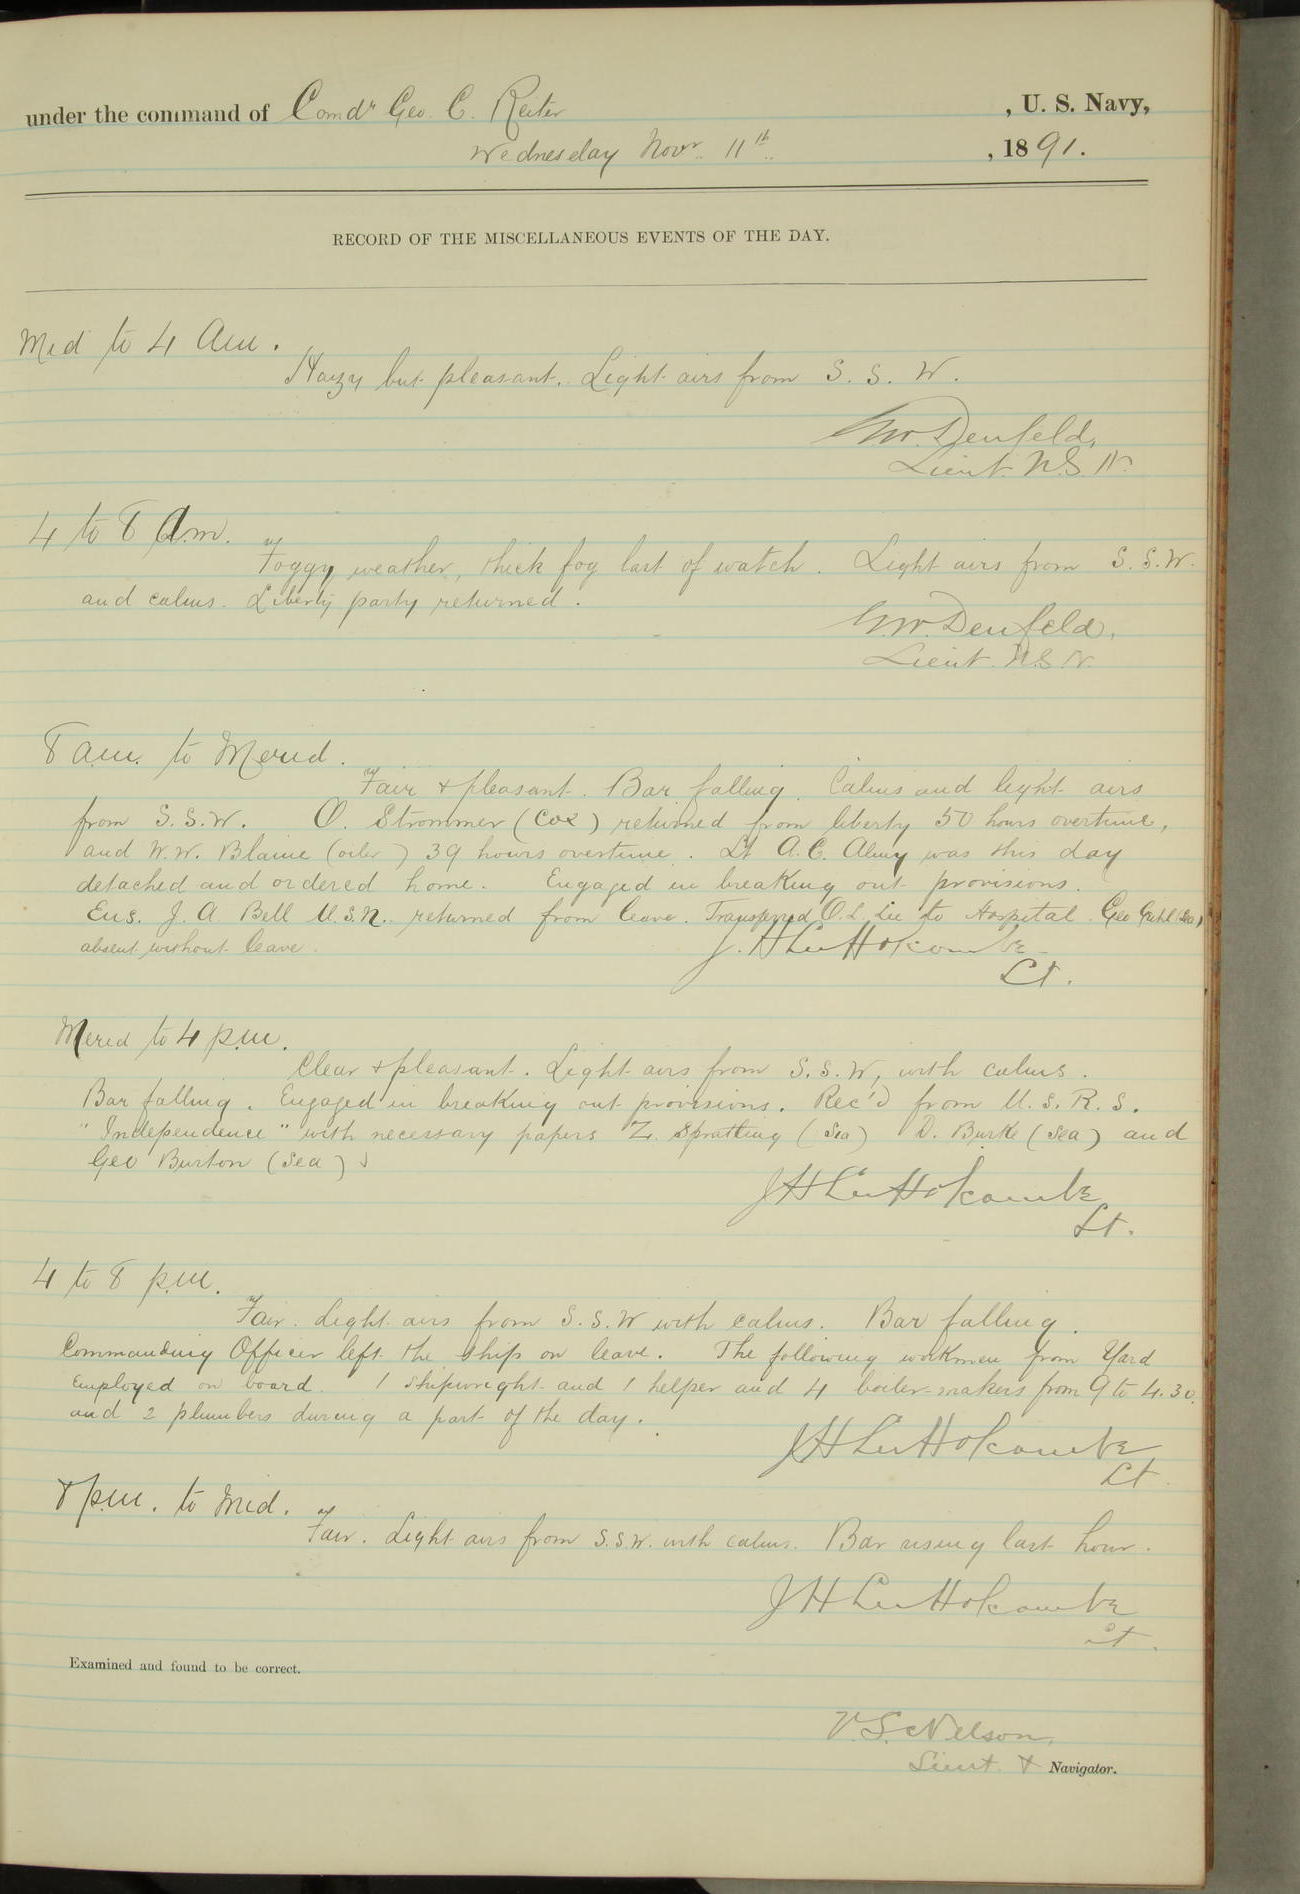 under the command of Comdr Geo. C. Reiter , U. S. Navy,
Wednesday Novr. 11th , 1891.
RECORD OF THE MISCELLANEOUS EVENTS OF THE DAY.
Mid to 4 am.
Hazy but pleasant. Light airs from S. S. W.
G.W. Denfeld,
Lieut. U.S.N.
4 to 8 a.m.
Foggy weather, thick fog last of watch. Light airs from S.S.W.
and calms. Liberty party returned.
G.W. Denfeld,
Lieut. U.S.N.
8 a.m. to Merid.
Fair & pleasant. Bar falling. Calms and light airs
from S.S.W. O. Strommer (Cox) returned from liberty 50 hours overtime,
and W.W. Blaine (oiler) 39 hours overtime. Lt A.C. Almy was this day
detached and ordered home. Engaged in breaking out provisions.
Ens. J. A. Bell U.S.N. returned from leave. Transferred O.L. Lee to Hospital. Geo (Sea)
absent without leave.
J. H. Lee Holcombe
Lt.
Mered to 4 p.m.
Clear & pleasant. Light airs from S.S.W, with calms.
Bar falling. Engaged in breaking out provisions. Rec'd from U.S.R.S.
"Independence" with necessary papers Z. Spratling (Sea) D. Burke (Sea) and
Geo Burton (Sea)
J H Lee Holcombe
Lt.
4 to 8 p.m.
Fair. Light airs from S.S.W with calms. Bar falling.
Commanding Officer left the ship on leave. The following workmen from Yard
employed on board. 1 shipwright and 1 helper and 4 boiler-makers from 9 to 4.30.
and 2 plumbers during a part of the day.
J H Lee Holcombe
Lt.
8 p.m. to Mid.
Fair. Light airs from S.S.W. with calms. Bar rising last hour.
J H Lee Holcombe
Lt.
Examined and found to be correct.
V. S. Nelson,
Lieut. & Navigator.